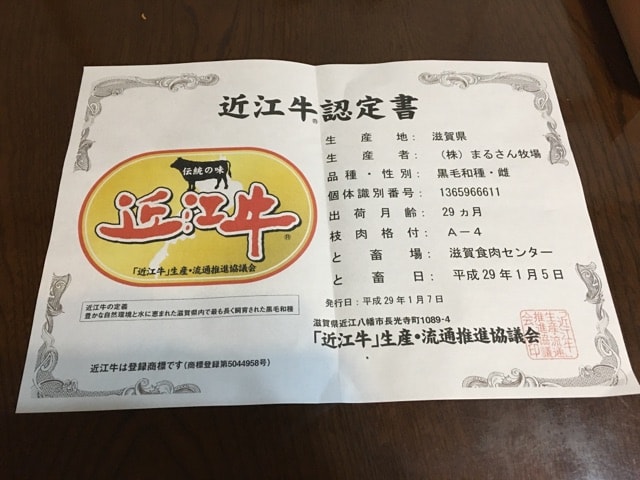 近江牛®認定書
伝統の味
近江牛®
「近江牛」生産・流通推進協議会
近江牛の定義
豊かな自然環境と水に恵まれた滋賀県内で最も長く飼育された黒毛和種
近江牛は登録商標です(商標登録第5044958号)
生産地: 滋賀県
生産者: (株)まるさん牧場
品種・性別: 黒毛和種・雌
個体識別番号: 1365966611
出荷月齢: 29ヵ月
枝肉格付: A-4
と畜場: 滋賀食肉センター
と畜日: 平成29年1月5日
発行日:平成29年1月7日
滋賀県近江八幡市長光寺町1089-4
「近江牛」生産・流通推進協議会
近江牛
生産流通
推進協議
会印